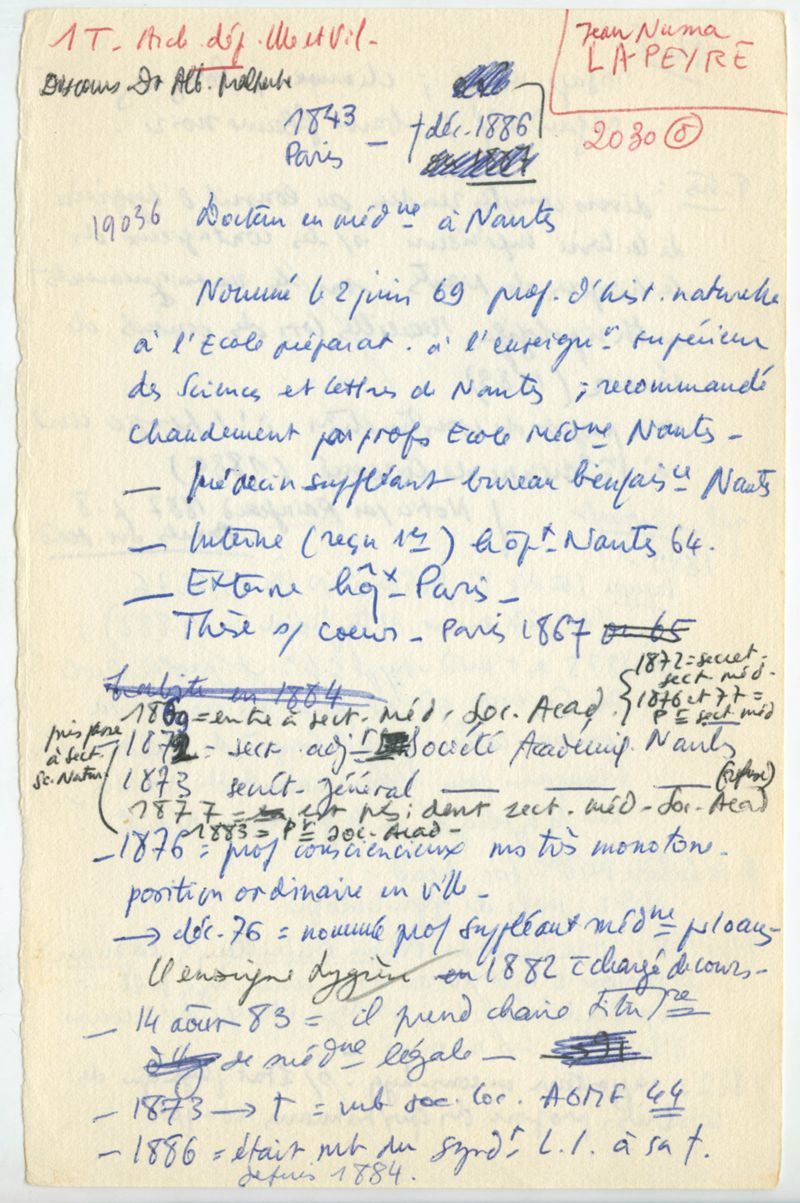 1T - Arch. dép. Ille et Vil -
Jean Numa
LAPEYRE
Discours Dr Alb. Malherbe
1843 - † déc. 1886
Paris
2030 ⑧
19036 Docteur en médne à Nantes
Nommé le 2 juin 69 prof. d'hist. naturelle
à l'Ecole préparat. à l'enseignt supérieur
des Sciences et lettres de Nantes ; recommandé
chaudement par profs Ecole Médne Nantes -
— Médecin suppléant bureau bienfaisce Nants
— Interne (reçu 1er) hôpx Nantes 64.
— Externe hôpx Paris -
Thèse s/ coeur - Paris 1867 ou 65
en 1884
1872 = secret.
sect. méd.
1876 et 77 =
Pt sect. méd
1869 = entre à sect. Méd. Soc. Acad.
puis passe
à sect.
Sc. Natur
1872 = secr. adjt Société Académiq. Nants
1873 secret. général — — — (refusé)
1877 = est président sect. méd. Soc. Acad
1883 = Pt Soc. Acad -
- 1876 = prof consciencieux ms très monotone -
position ordinaire en ville -
→ déc. 76 = nommé prof suppléant médne pr 10 ans -
Il enseigne hygiène en 1882 = chargé de cours -
- 14 août 83 = il prend chaire titulre
de médne légale -
- 1873 → † = mb soc. loc. AGMF 44
- 1886 = était mb du syndt L.I. à sa †.
depuis 1884.